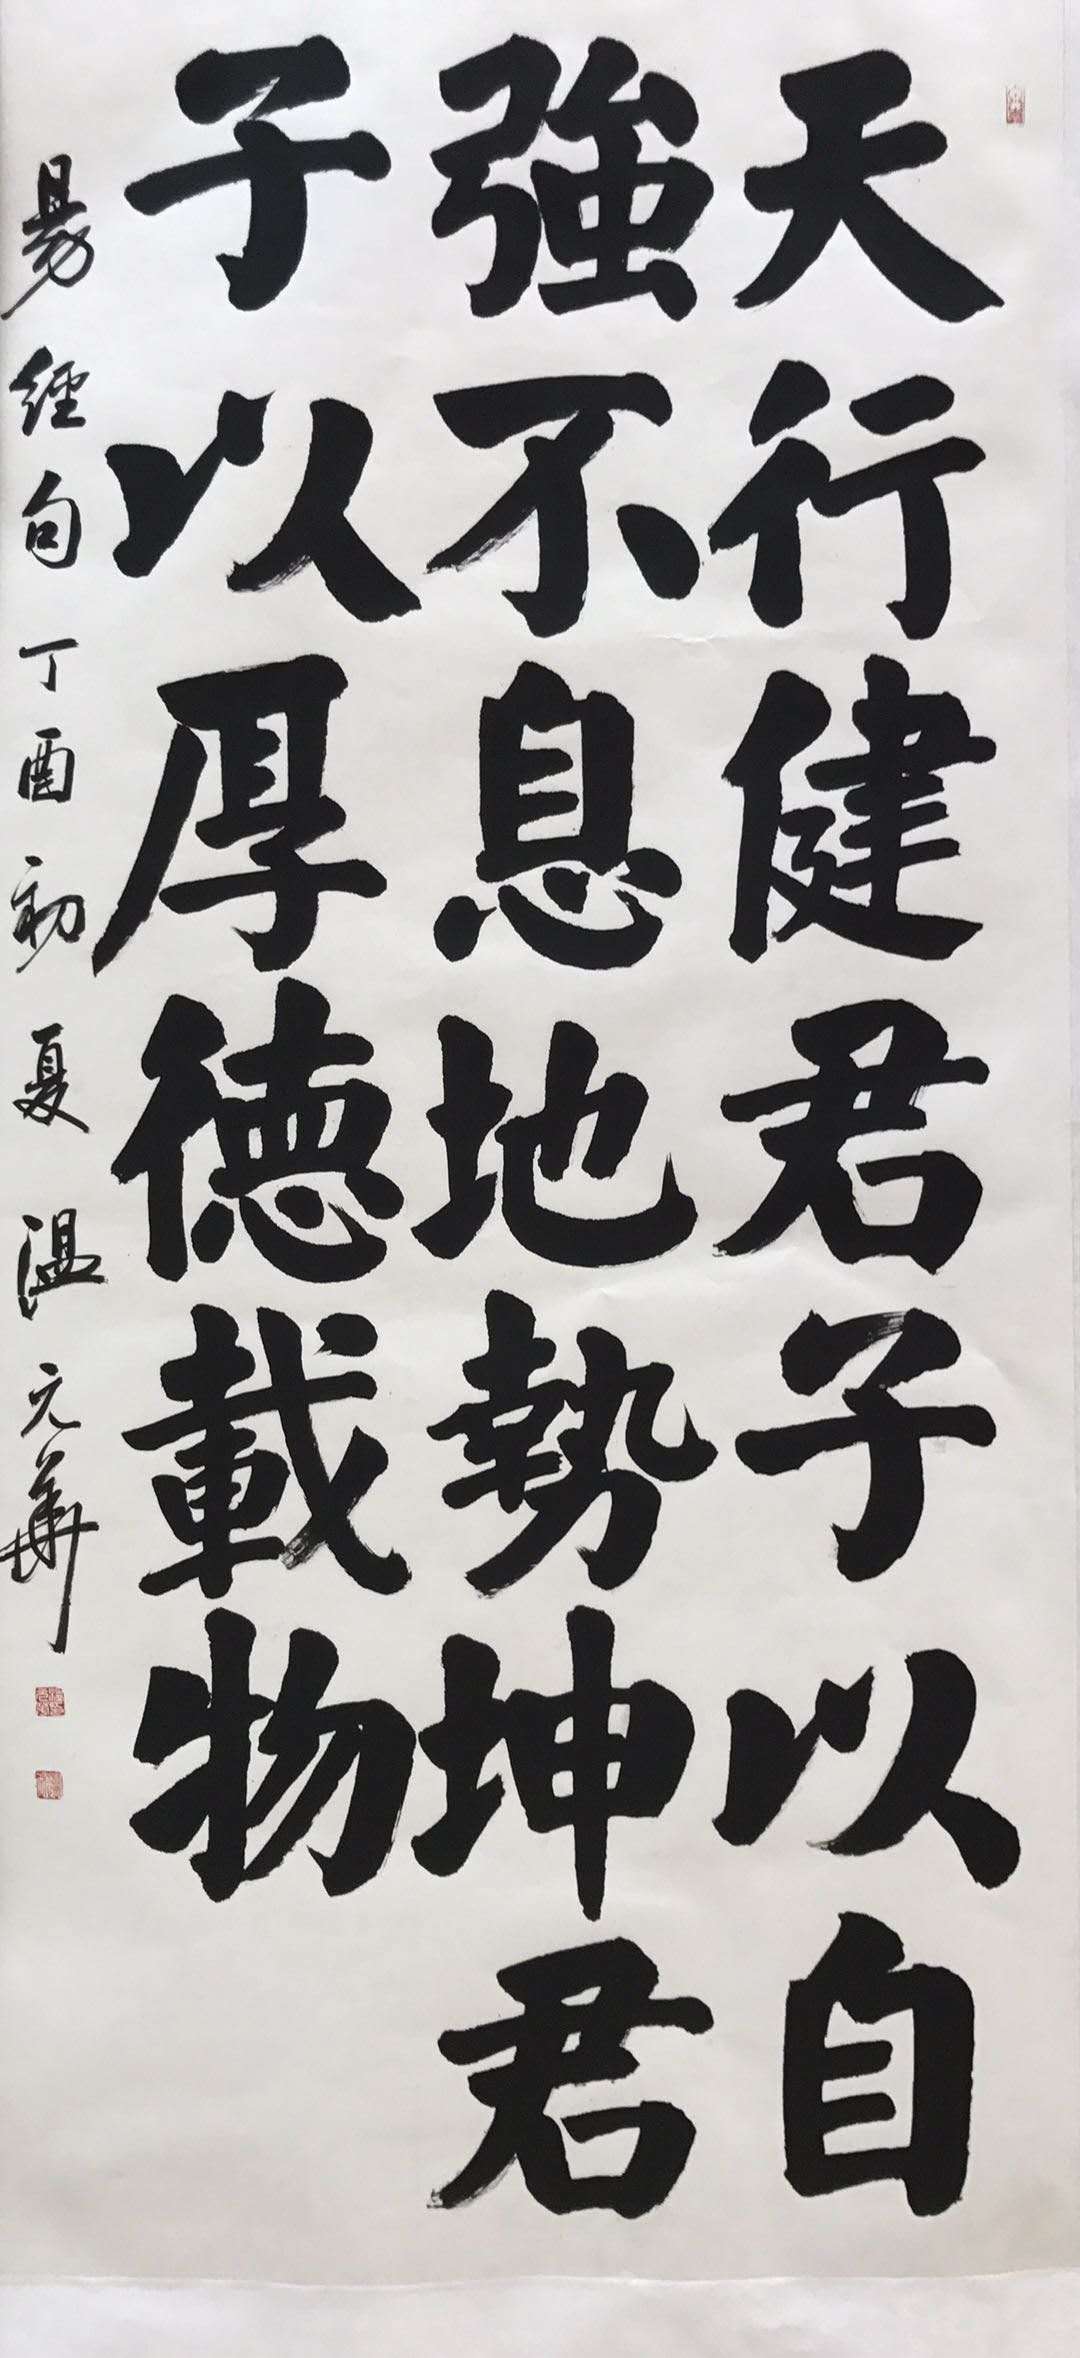 天行健君子以自
強不息地勢坤君
子以厚德載物
易經句丁酉初夏溫元華